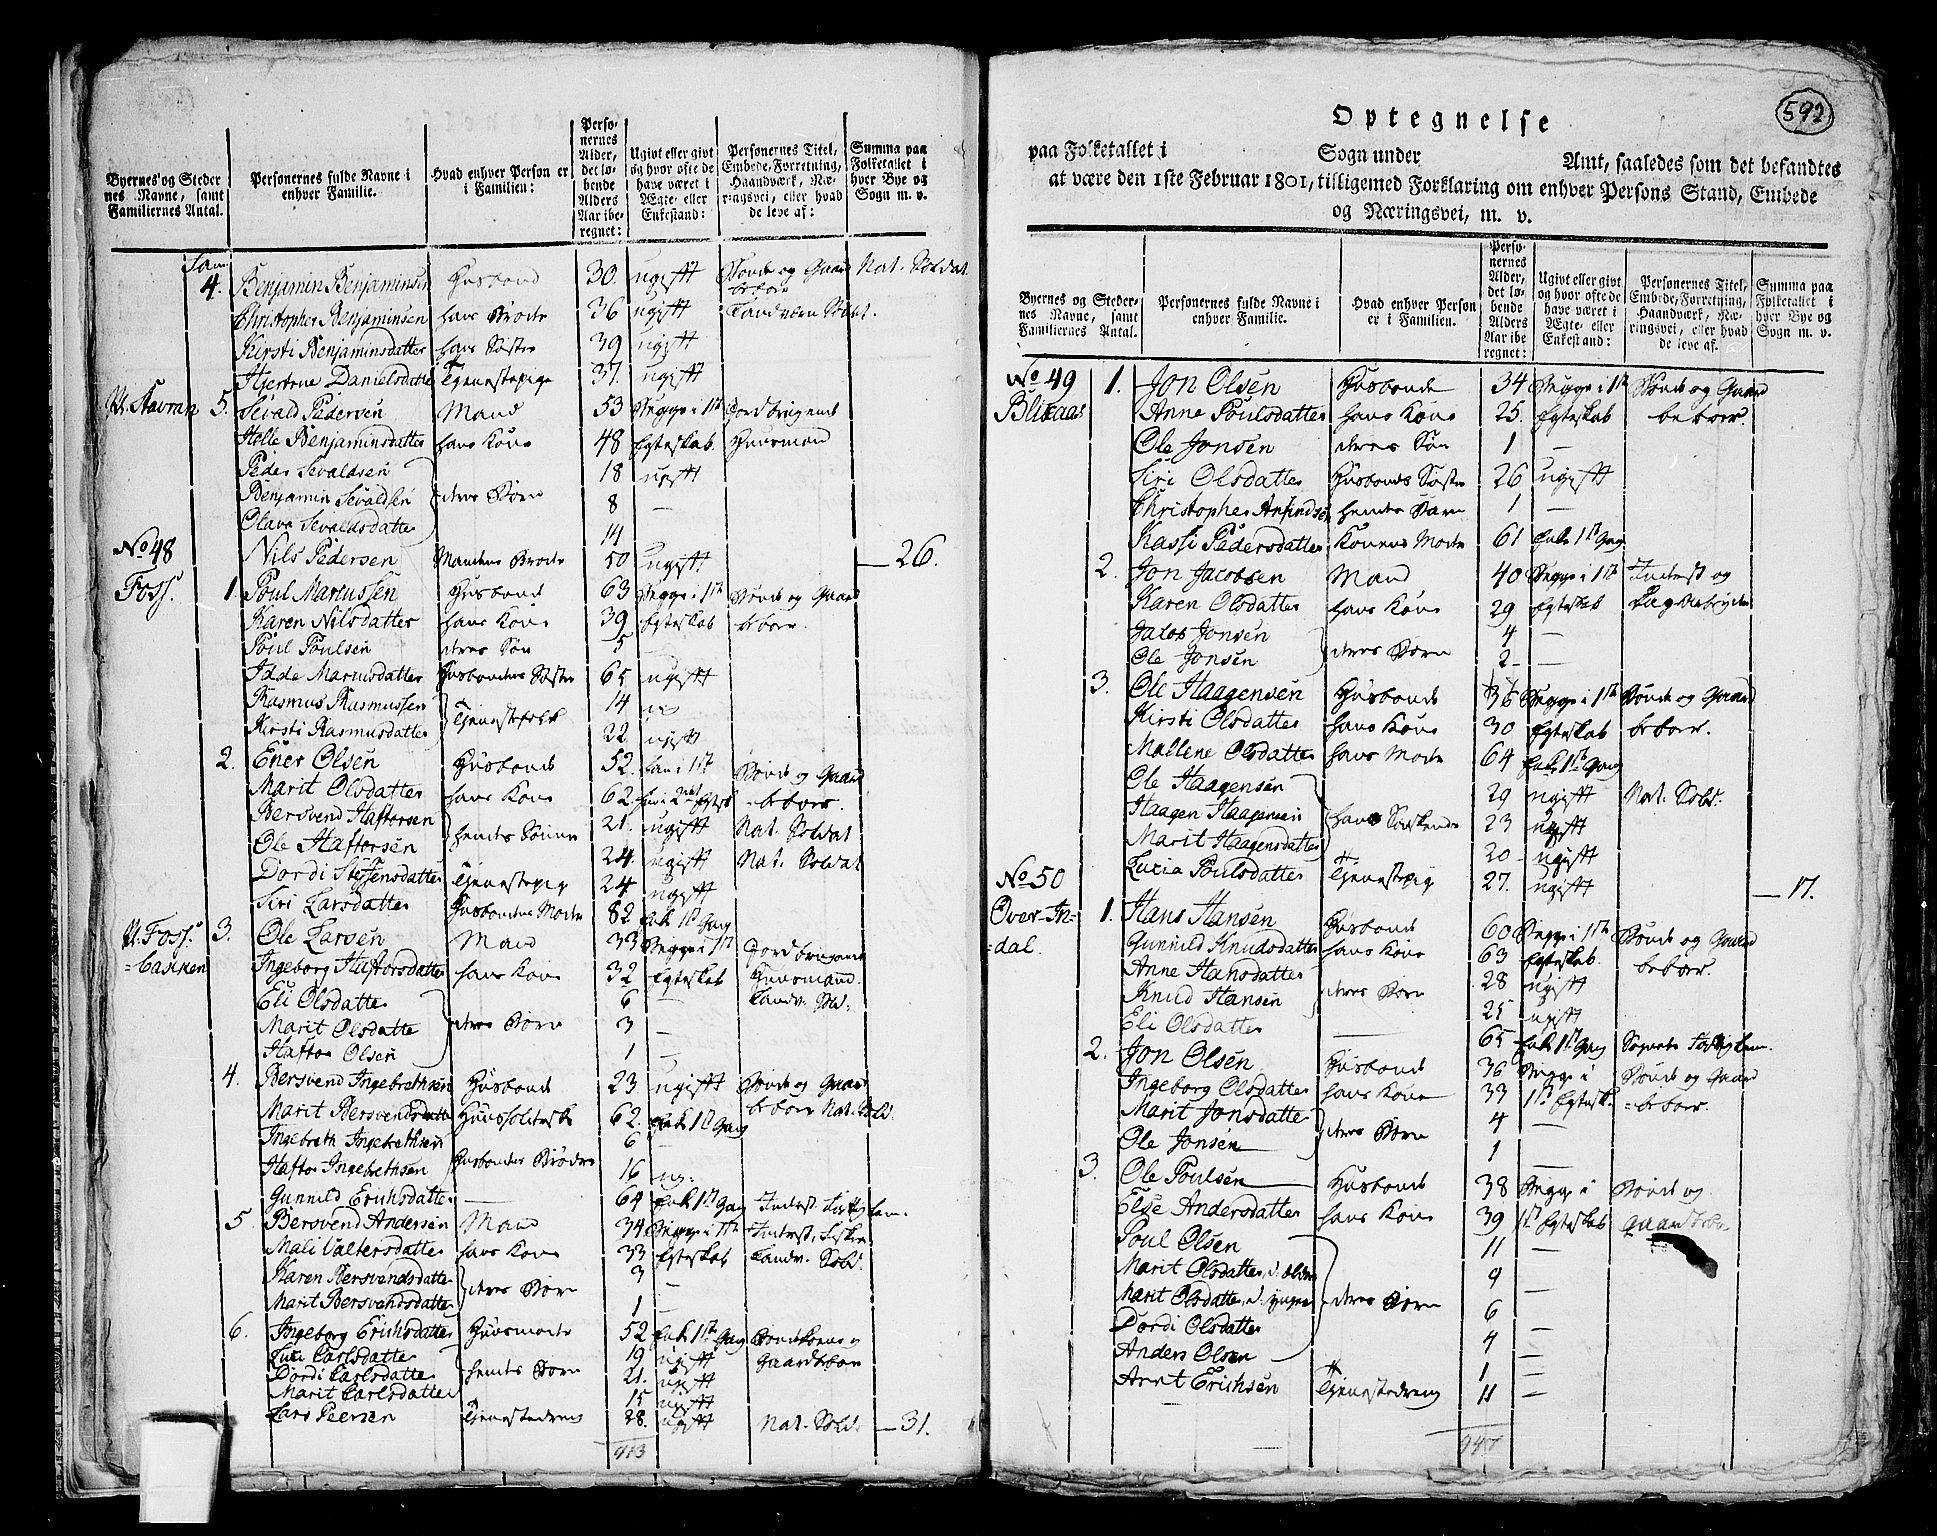 Byernes og Steder nes Navne, samt Familiernes Antal.
Personernes fulde Navne i enhver Familie.
Hvad enhver Person er i Familien:
Personernes Alder, det løbende Alders Aar iberegnet:
Ugivt eller givt og hvor ofte de have været i Ægte- eller Enkestand:
Personernes Titel, Embede, Forretning, Haandværk, Næringsvei, eller hvad de leve af:
Summa paa Folketallet i hver Bye og Sogn m. v.
4. Benjamin Benjaminsen Husbond 30 ugift Bonde og Gaard Nat. Soldat
beboer
Christopher Benjaminsen hans Broder 36 ugift Landværn Soldat.
Kirsti Benjaminsdatter hans Søster 39 ugift
Hjertrue Danielsdatter Tjenestepige 37. ugift
Sevald Pedersen Mand 53 Begge i 1ste Jordbrugende
5.
Benjaminsdatter hans Kone 48 Egteskab Huusmand
Peder Sevaldsen 18 ugift
Benjamin Sevaldsen deres Børn 8 —
Olava Sevaldsdatter 14
No 48
Nils Pedersen Mandens Broder 50 ugift. — 26.
Foss. 1. Poul Marcussen Husbond 63 Begge i 1ste Bonde og Gaard
Karen Nilsdatter hans Kone 39 Egteskab beboer.
Poul Poulsen deres Søn 5 —
Marcusdatter Husbondens Søster 65 ugift
Rasmus Rasmussen 14
Tjenestefolk
Kirsti Rasmusdatter 22 ugift
2. Ener Olsen Husbond 52.
Bonde og Gaard
Marit Olsdatter hans Kone 62.
beboer.
Bersvend Haftorsen 21. ugift Nat. Soldat
hendes Sønner
Ole Haftorsen 24. ugift Nat. Soldat
Dordi Steffensdatter Tjenestepige 24 ugift
Siri Larsdatter Husbondens Moder 82 Enke 1ste Gang
3. Ole Larsen Mand 33 Begge i 1ste Jordbrugende
Ingeborg Haftorsdatter hans Kone 32 Egteskab Huusmand
Eli Olsdatter 6 — Landv. Sold.
Marit Olsdatter deres Børn 3 —
Haftor Olsen 1 —
4. Bersvend Ingebrethsen Husbond 23 ugift Bonde og Gaard
beboer Nat. Sold.
Marit Bersvendsdatter 62. Enke 1ste Gang
Ingebreth Ingebrethsen 6 —
Husbondens Brødre
Haftor Ingebrethsen 16 ug.
Gunnild Erichsdatter — 64 Enke 1ste Gang
5. Bersvend Andersen Mand 34 Begge i 1ste Inderst, Fisker
Mali Valtersdatter hans Kone 33 Egteskab Landv. Sold.
Karen Bersvendsdatter 3 —
deres Børn
Marit Bersvendsdatter 1 —
6. Ingeborg Erichsdatter Huusmoder 52 Enke 1ste Gang
Carlsdatter 19 ugift
hendes Børn
Dordi Carlsdatter 21. ugift
Marit Carlsdatter 15 ugift
Lars Peersen Tjenestedreng 28. ugift Nat. Sold. — 31.
913
592
Optegnelse
paa Folketallet i Sogn under Amt, saaledes som det befandtes
at være den 1ste Februar 1801, tilligemed Forklaring om enhver Persons Stand, Embede
og Næringsvei, m. v.
Byernes og Steder-nes Navne, samt Familiernes Antal.
Personernes fulde Navne i enhver Familie.
Hvad enhver Person er i Familien.
Personernes Alder, det løbende Alders Aar iberegnet:
Ugivt eller givt og hvor ofte de have været i Ægte- eller Enkestand:
Personernes Titel, Embede, Forretning, Haandværk, Næringsvei, eller hvad de leve af.
Summa paa Folketallet i hver Bye og Sogn m. v.
No 49 1. Jon Olsen Husbonde 34 Begge i 1ste Bonde og Gaard
Blikaas Anne Poulsdatter hans Kone 25. Egteskab beboer.
Ole Jonsen deres Søn 1 —
Siri Olsdatter Husbonds Søster 26 ugift
Christopher hendes Barn 1 —
Kassi Pedersdatter Konens Moder 61 Enke 1ste Gang
2. Jon Jacobsen Mand 40 Begge i 1ste Inderst og
Karen Olsdatter hans Kone 29 Egteskab
Jacob Jonsen 4 —
deres Børn
Ole Jonsen 2 —
3. Ole Haagensen Husbond 36 Begge i 1ste Bonde og Gaard
Kirsti Olsdatter hans Kone 30 Egteskab beboer.
Mallene Olsdatter hans Moder 64 Enke 1ste Gang
Ole Haagensen 29 ugift Nat. Sold.
Haagen Haagensen hans Søskende 23 ugift
Marit Haagensdatter 20 ugift
No 50 Lucia Poulsdatter Tjenestepige 27. ugift — 17.
Over-In= 1. Hans Hansen Husbond 60 Begge i 1ste Bonde og Gaard
=dal. Gunnild Knudsdatter hans Kone 63 Egteskab. beboer.
Anne Hansdatter 28 ugift
deres Børn
Knud Hansen 25 ugift
Eli Olsdatter — 65 Enke 1ste Gang Sognets Fattiglem.
2. Jon Olsen Husbond 36 Begge i Bonde og Gaard
Ingeborg Olsdatter hans Kone 33 1ste Egtesk. =beboer.
Marit Jonsdatter 4 —
deres Børn
Ole Jonsen 1 —
3. Ole Poulsen Husbond 38 Begge i Bonde og
Else Andersdatter hans Kone 39 1ste Egteskab
Poul Olsen 11 —
Marit Olsdatter, d. ældre 9
Marit Olsdatter, d. yngre deres Børn 6
Dordi Olsdatter 4 —
Anders Olsen 1 —
Arnt Erichsen Tjenestedreng 11 —
947